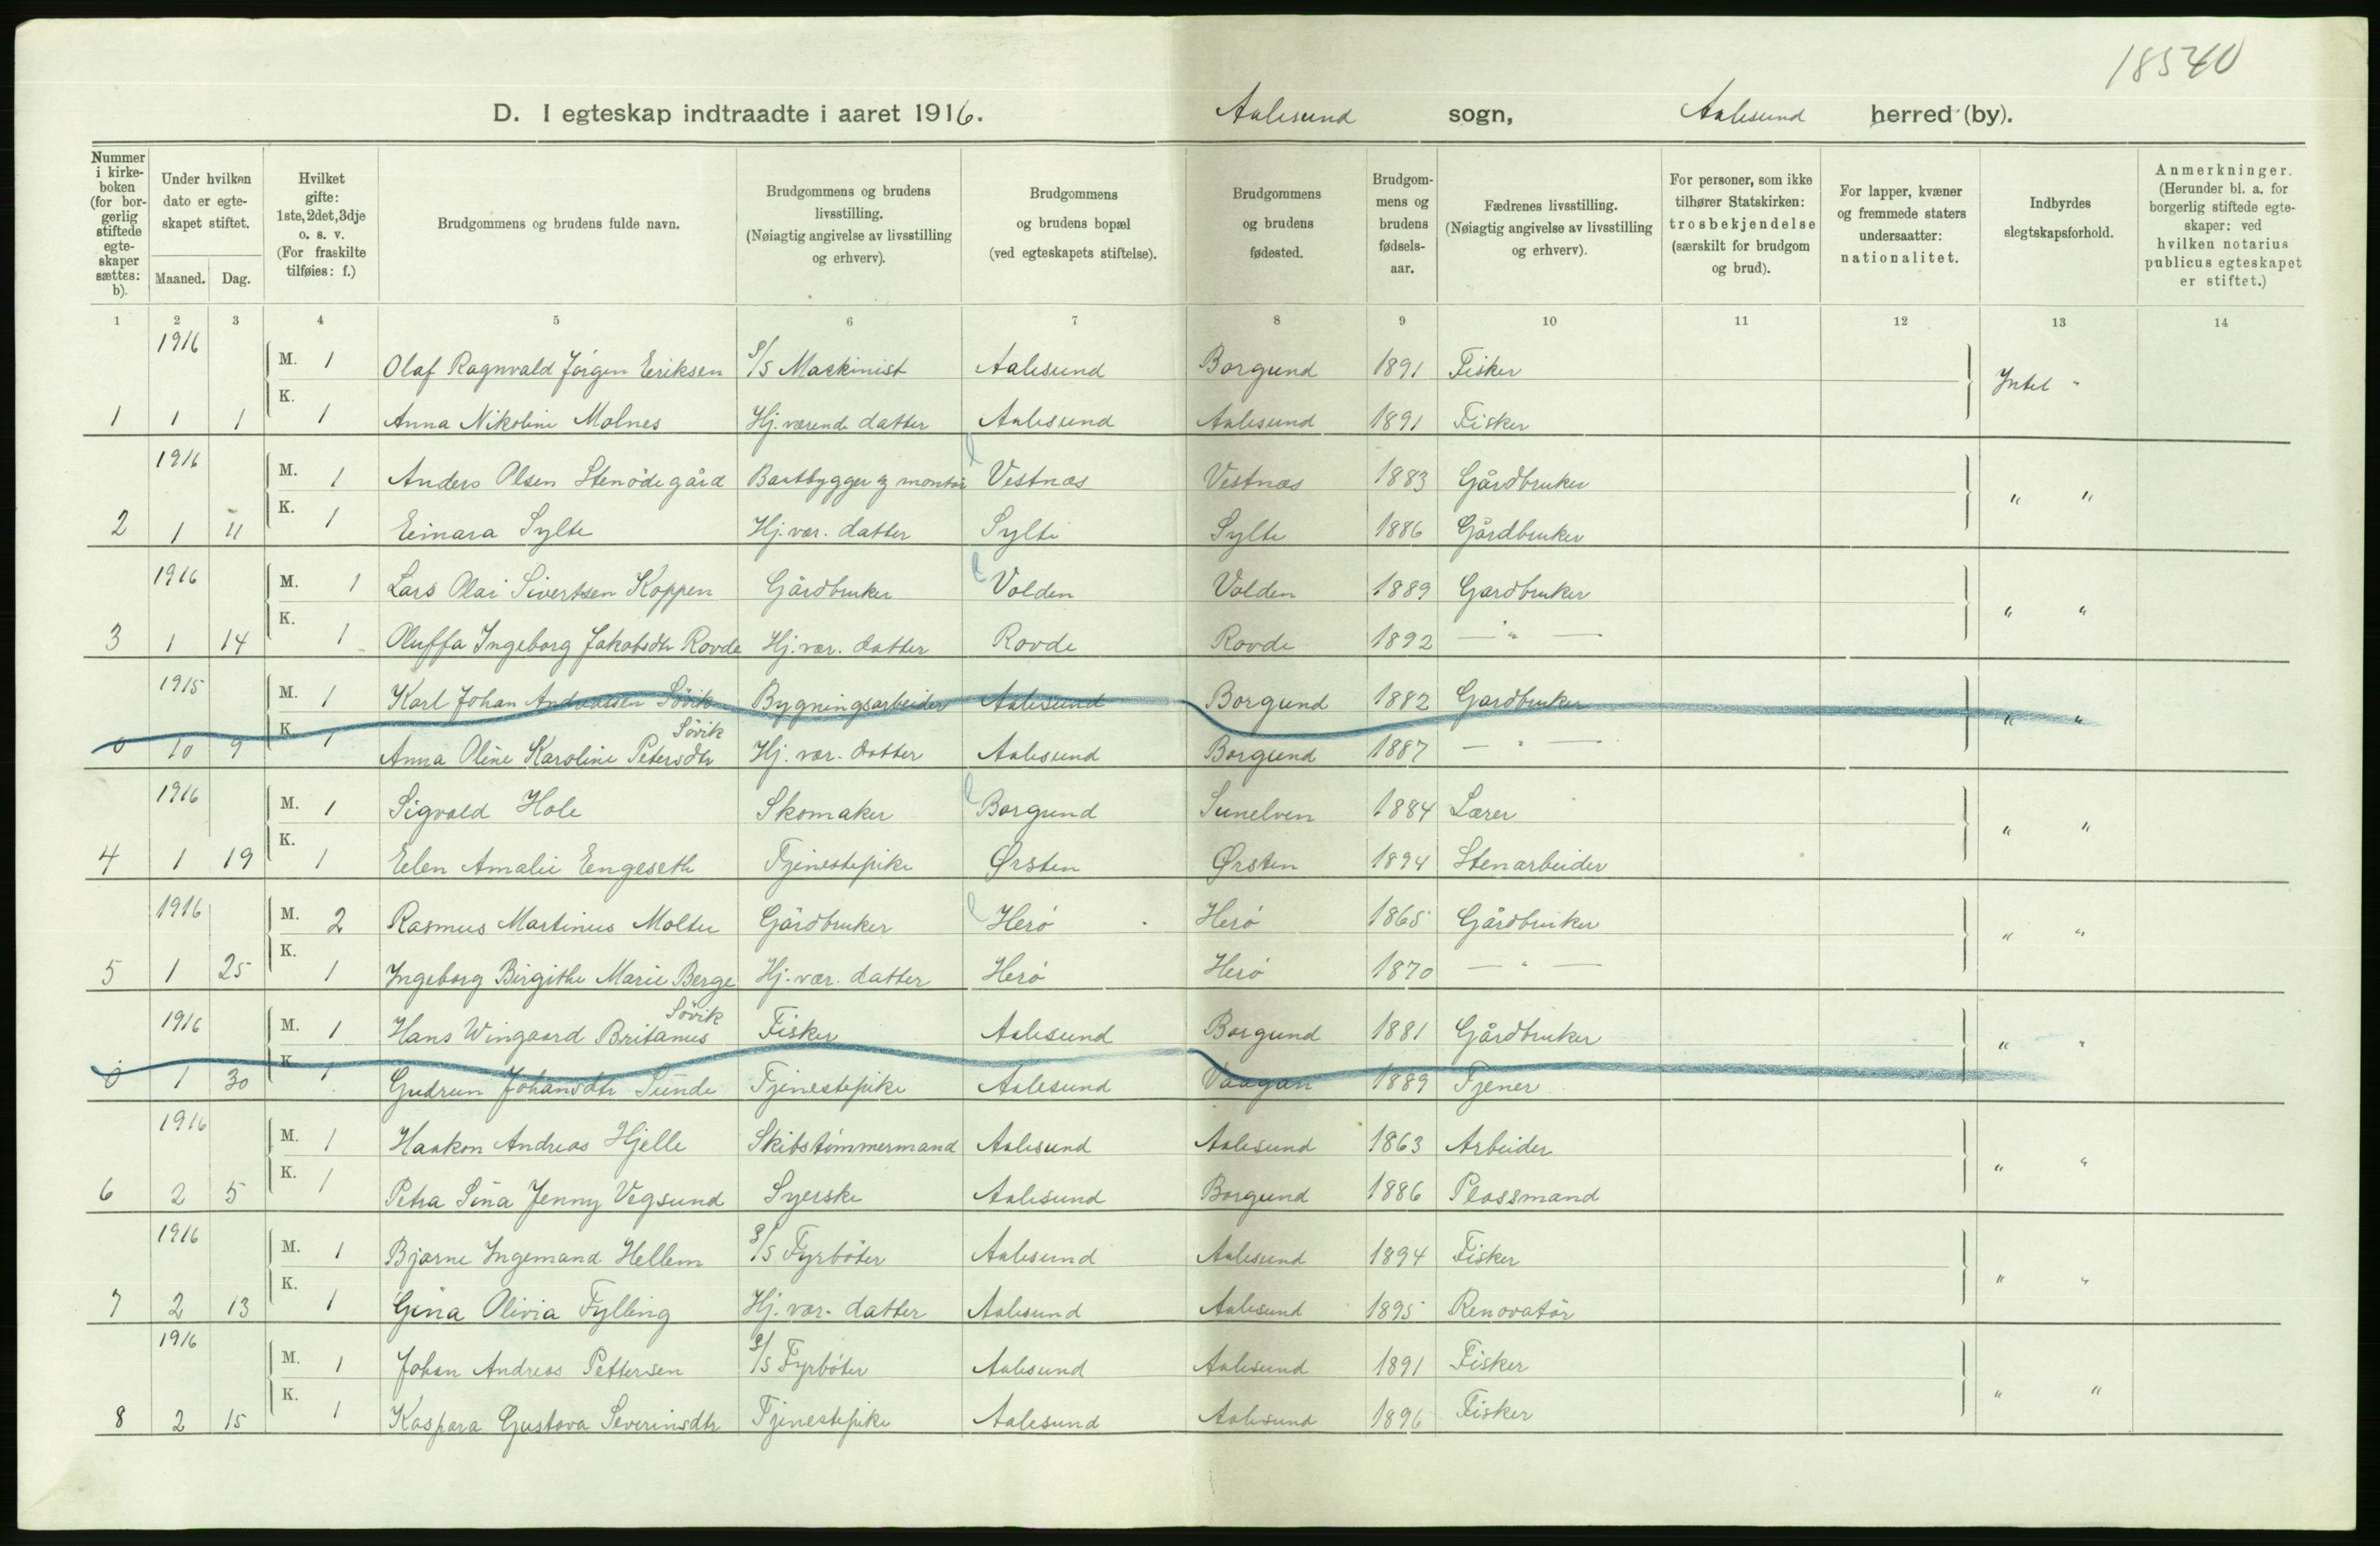 18540
D. I egteskap indtraadte i aaret 1916. Aalesund sogn, Aalesund herred (by).
Nummer i kirke-boken (for bor-gerlig stiftede egte-skaper sættes: b).
Under hvilken dato er egte-skapet stiftet.
Maaned. Dag.
Hvilket gifte: 1ste, 2det, 3dje o. s. v. (For fraskilte tilføies: f.)
Brudgommens og brudens fulde navn.
Brudgommens og brudens livsstilling. (Nøiagtig angivelse av livsstilling og erhverv).
Brudgommens og brudens bopæl (ved egteskapets stiftelse).
Brudgommens og brudens fødested.
Brudgom-mens og brudens fødsels-aar.
Fædrenes livsstilling. (Nøiagtig angivelse av livsstilling og erhverv).
For personer, som ikke tilhører Statskirken: trosbekjendelse (særskilt for brudgom og brud).
For lapper, kvæner og fremmede staters undersaatter: nationalitet.
Indbyrdes slegtskapsforhold.
Anmerkninger. (Herunder bl. a. for borgerlig stiftede egte-skaper: ved hvilken notarius publicus egteskapet er stiftet.)
1 2 3 4 5 6 7 8 9 10 11 12 13 14
1916 M. 1 Olaf Ragnvald Jørgen Eriksen S/S Maskinist Aalesund Borgund 1891 Fisker Intet "
1 1 1 K. 1 Anna Nikoline Molnes Hj. værende datter Aalesund Aalesund 1891 Fisker
1916 M. 1 Anders Olsen Stenødegård Baatbygger og montør Vestnæs Vestnæs 1883 Gårdbruker " "
2 1 11 K. 1 Einara Sylte Hj. vær. datter Sylte Sylte 1886 Gårdbruker
1916 M. 1 Lars Olai Sivertsen Koppen Gårdbruker Volden Volden 1889 Gardbruker " "
3 1 14 K. 1 Oluffa Ingeborg Jakobsdtr Rovde Hj. vær. datter Rovde Rovde 1892 — " —
1915 M. 1 Karl Johan Andreassen Søvik Bygningsarbeider Aalesund Borgund 1882 Gardbruker " "
Søvik
0 10 9 K. 1 Anna Oline Karoline Petersdtr Hj. vær. datter Aalesund Borgund 1887 — " —
1916 M. 1 Sigvald Hole Skomaker Borgund Sunelven 1884 Lærer " "
4 1 19 K. 1 Elen Amalie Engeseth Tjenestepike Ørsten Ørsten 1894 Stenarbeider
1916 M. 2 Rasmus Martinus Moltu Gårdbruker Herø Herø 1865 Gårdbruker " "
5 1 25 K. 1 Ingeborg Birgithe Marie Berge Hj. vær. datter Herø Herø 1870 — " —
Søvik
1916 M. 1 Hans Wingaard Britanus Fisker Aalesund Borgund 1881 Gårdbruker " "
0 1 30 K. 1 Gudrun Johansdtr Sunde Tjenestepike Aalesund Vaagan 1889 Tjener
1916 M. 1 Haakon Andreas Hjelle Skibstømmermand Aalesund Aalesund 1863 Arbeider " "
6 2 5 K. 1 Petra Sina Jenny Vegsund Syerske Aalesund Borgund 1886 Plassmand
1916 M. 1 Bjarne Ingemand Hellem S/S Fyrbøter Aalesund Aalesund 1894 Fisker " "
7 2 13 K. 1 Gina Olivia Fylling Hj. vær. datter Aalesund Aalesund 1895 Renovatør
1916 M. 1 Johan Andreas Pettersen S/S Fyrbøter Aalesund Aalesund 1891 Fisker " "
8 2 15 K. 1 Kaspara Gustava Severinsdtr Tjenestepike Aalesund Aalesund 1896 Fisker